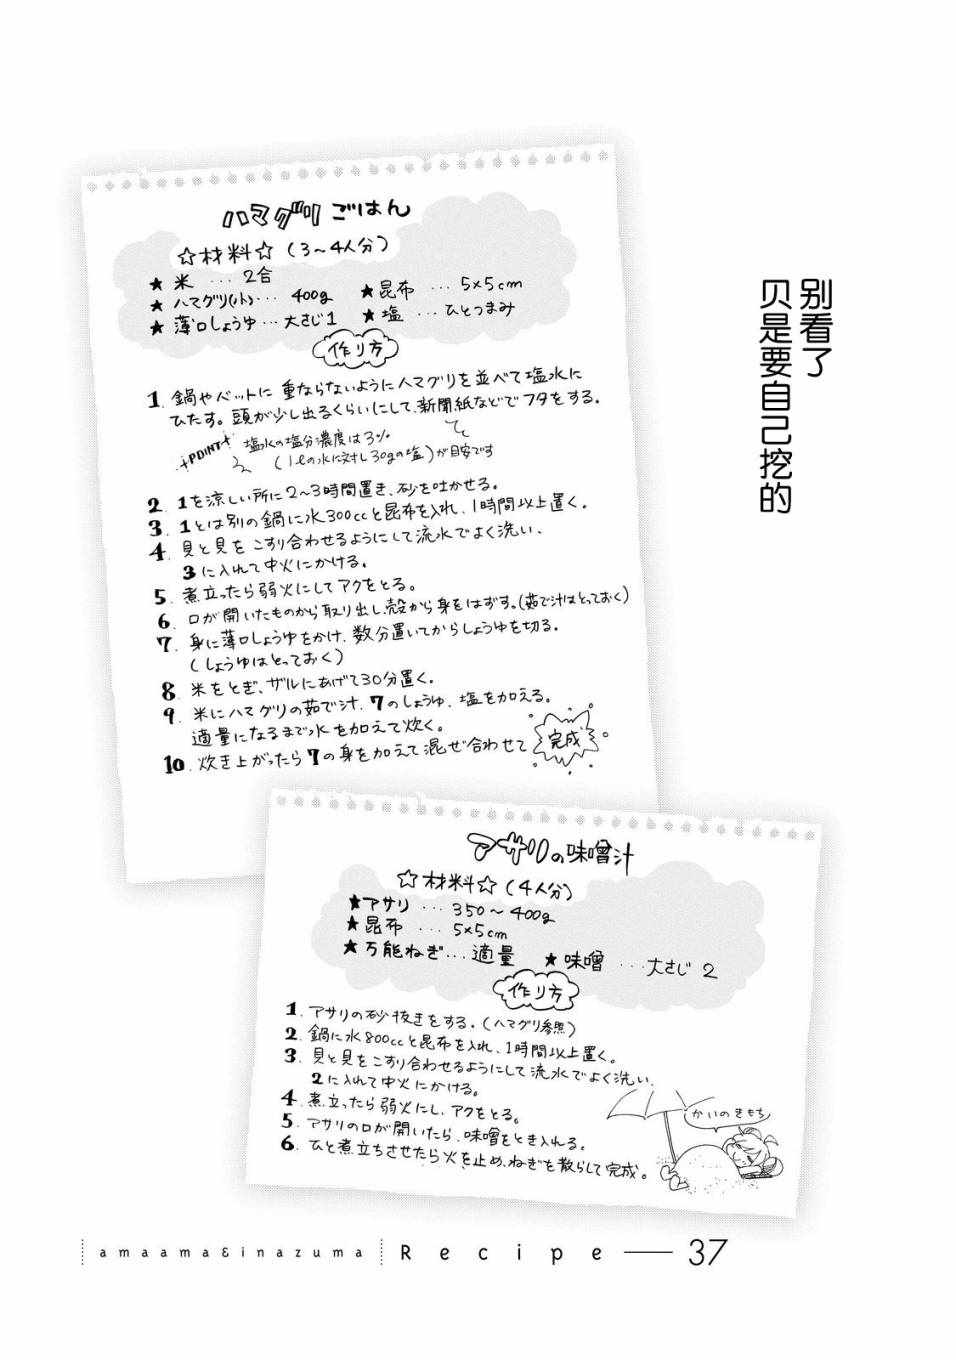 别看了
贝是要自己挖的
ハマグリごはん
☆材料☆(3～4人分)
★米 … 2合
★ハマグリ(小)… 400g
★薄口しょうゆ … 大さじ1
★昆布 … 5×5cm
★塩 … ひとつまみ
作り方
1. 鍋やバットに 重ならないようにハマグリを並べて塩水に
ひたす。頭が少し出るくらいにして、新聞紙などでフタをする。
+POINT+ 塩水の塩分濃度は3%
(1ℓの水に対し30gの塩)が目安です
2. 1を涼しい所に2～3時間置き、砂を吐かせる。
3. 1とは別の鍋に水300ccと昆布を入れ、1時間以上置く。
4. 貝と貝をこすり合わせるようにして流水でよく洗い、
3に入れて中火にかける。
5. 煮立ったら弱火にしてアクをとる。
6. 口が開いたものから取り出し、殻から身をはずす。(茹で汁はとっておく)
7. 身に薄口しょうゆをかけ、数分置いてからしょうゆを切る。
(しょうゆはとっておく)
8. 米をとぎ、ザルにあげて30分置く。
9. 米にハマグリの茹で汁、7のしょうゆ、塩を加える。
適量になるまで水を加えて炊く。
10. 炊き上がったら7の身を加えて混ぜ合わせて 完成
アサリの味噌汁
☆材料☆(4人分)
★アサリ … 350～400g
★昆布 … 5×5cm
★万能ねぎ … 適量 ★味噌 … 大さじ2
作り方
1. アサリの砂抜きをする。(ハマグリ参照)
2. 鍋に水800ccと昆布を入れ、1時間以上置く。
3. 貝と貝をこすり合わせるようにして流水でよく洗い、
2に入れて中火にかける。
4. 煮立ったら弱火にし、アクをとる。
5. アサリの口が開いたら、味噌をとき入れる。
6. ひと煮立ちさせたら火を止め、ねぎを散らして完成。
かいのきもち
amaama&inazuma Recipe — 37